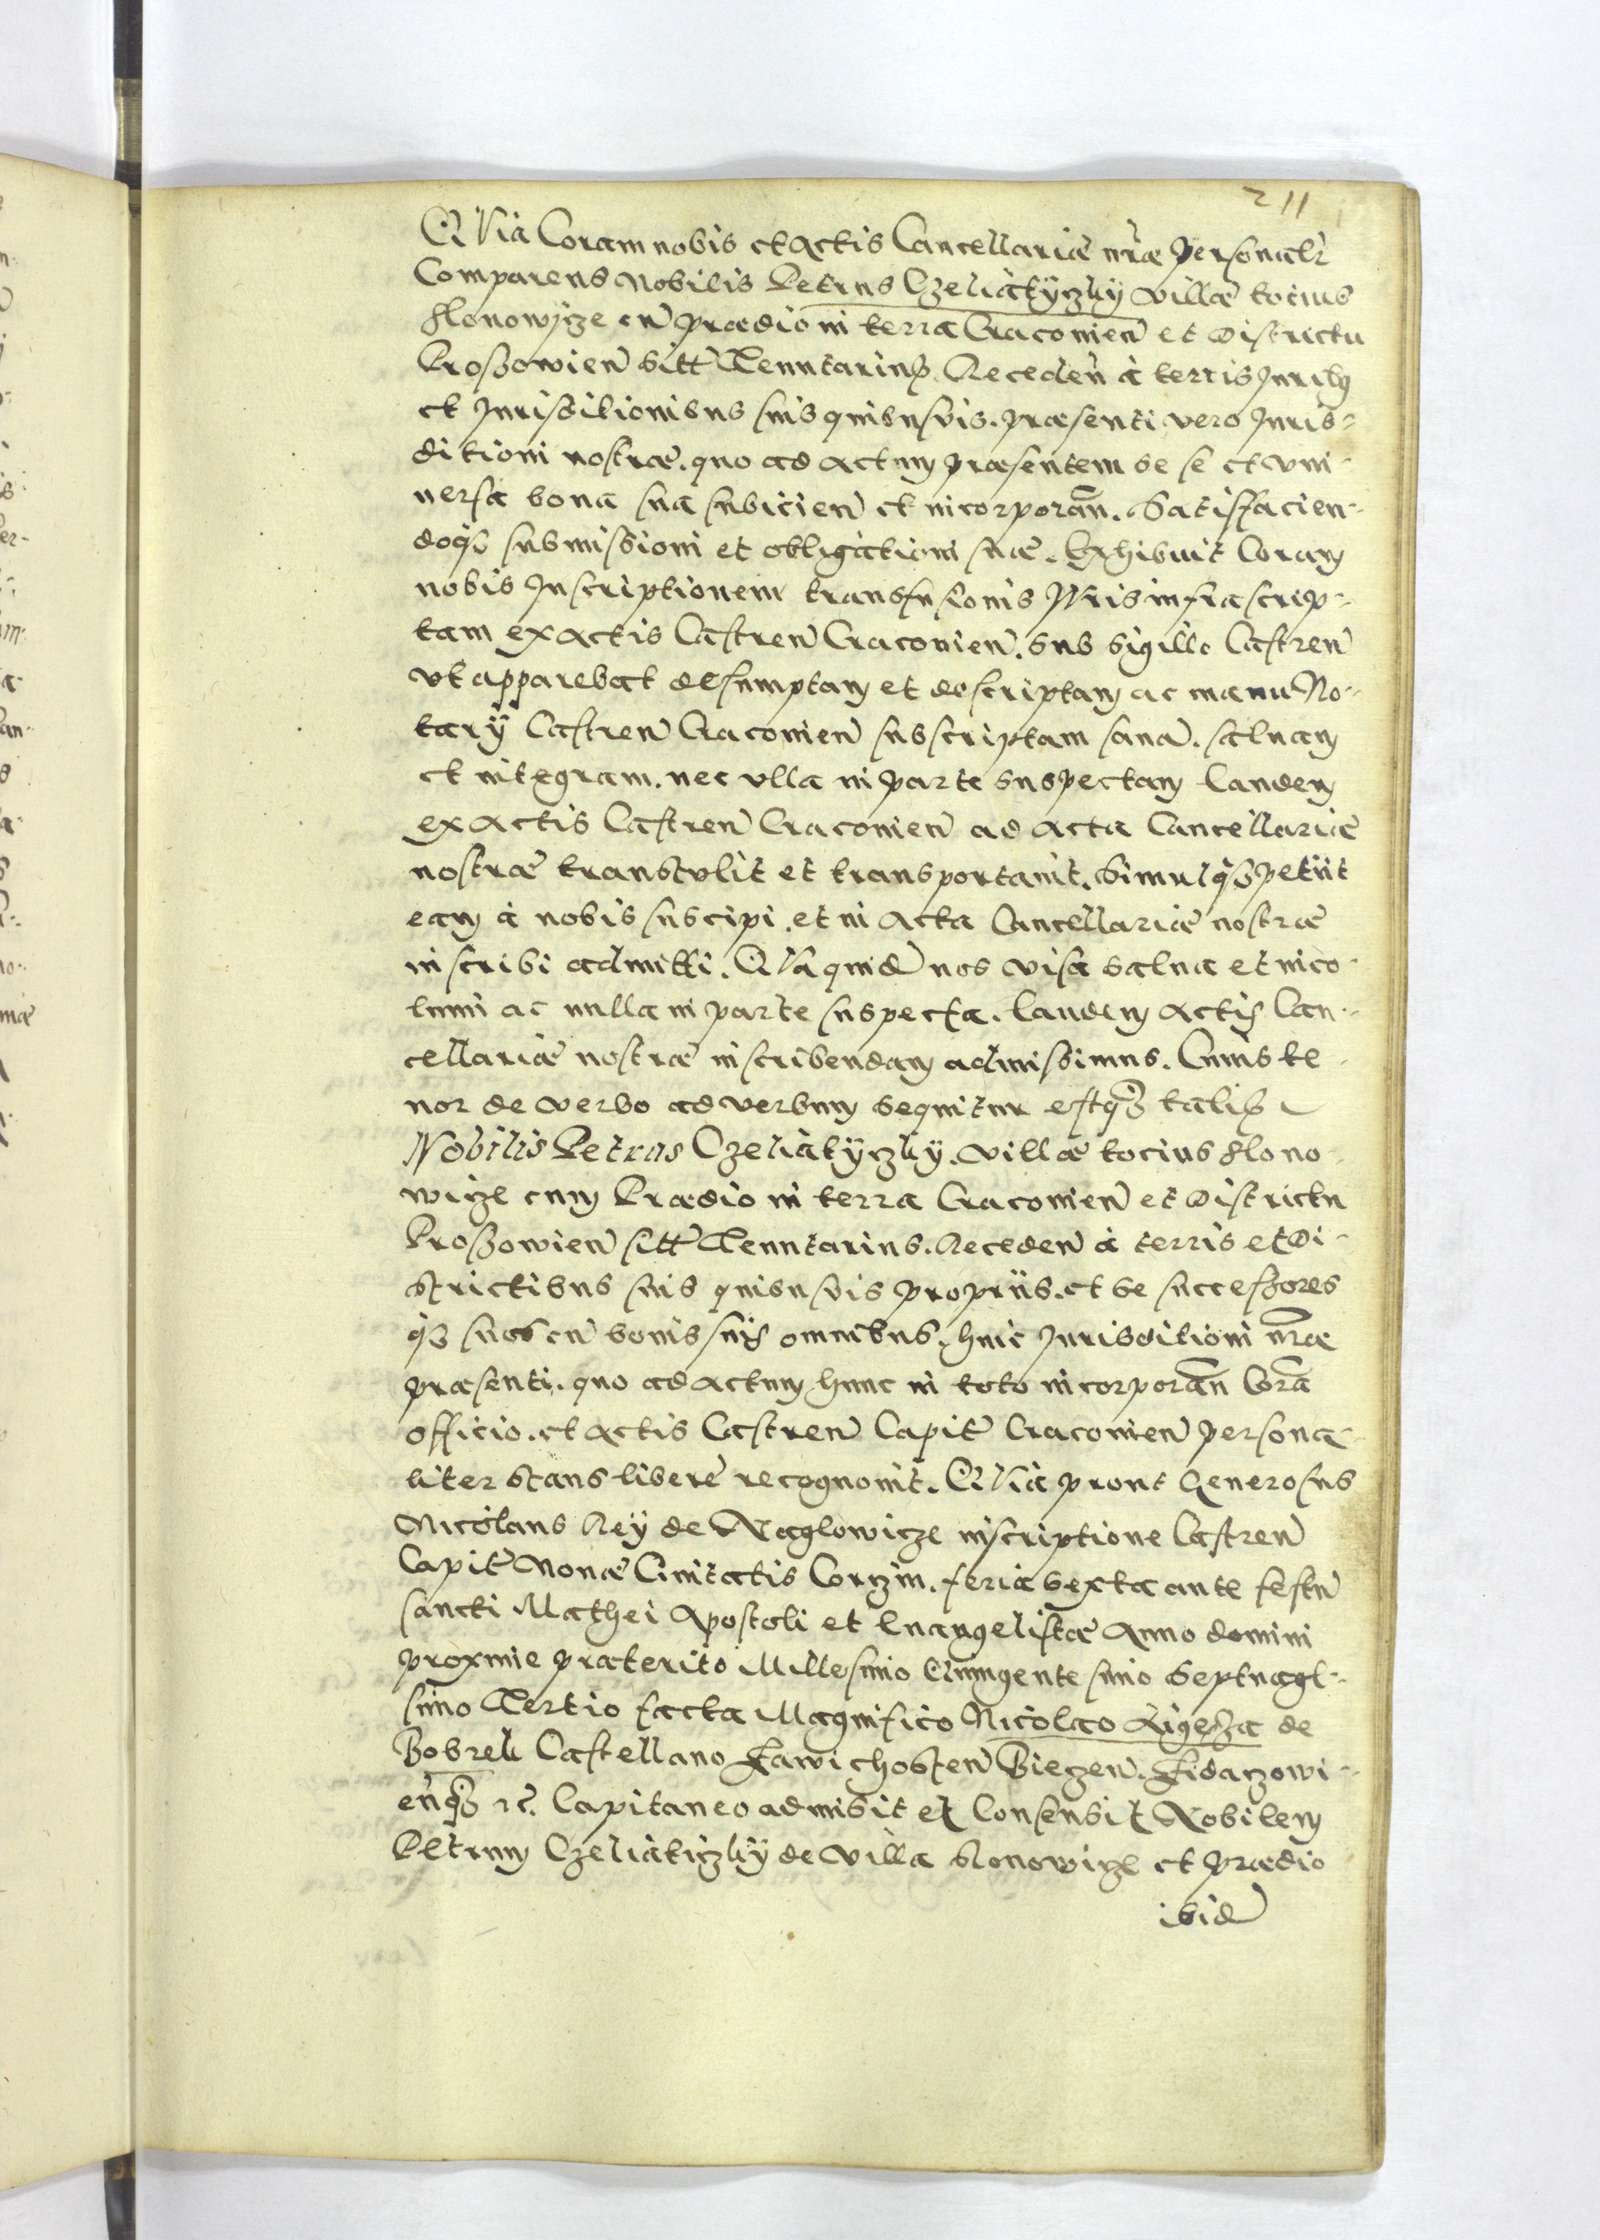 211
QVia Coram nobis et Actis Cancellariæ nr̃æ personalr̃
Comparens Nobilis Petrus Czeliatÿczkÿ villæ tocius
Slonowycze cũ prædio in terra Cracouien̄ et Districtu
Proszowien̄ sitt̄ Tenutarius. Receden̄ à terris Iurib9
et Iurisditionibus suis quibusuis. præsenti vero Iuris-
ditioni nostræ. quo ad actum præsentem se se et vni-
uersa bona sua subicien̄ et incorporan̄. Satisfacien-
doq3 submissioni et obligationi suæ. Exhibuit Coram
nobis Inscriptionem transfusionis IVris infrascrip-
tam ex Actis Castren̄ Cracouien̄. sub sigillo Castren̄
vt apparebat desumptam et descriptam ac manu No-
tarÿ Castren̄ Cracouien̄ subscriptam sanā. saluam
et integram. nec vlla in parte suspectam Eandem
ex Actis Castren̄ Cracouien̄ ad Acta Cancellariæ
nostræ transtulit et transportauit. Simulq3 petiit
eam à nobis suscipi. et in Acta Cancellariæ nostræ
inscribi admitti. QVa quid̄ nos visa salua et inco-
lumi ac nulla in parte suspecta. Eandem Actis Can-
cellariæ nostræ inscribendam admissimus. Cuius te-
nor de verbo ad verbum sequitur estq3 talis
Nobilis Petrus Czeliatÿczkÿ. villæ tocius Slono-
wicze cum Prædio in terra Cracouien̄ et Districtu
Proszowien̄ sitt̄ Tenutarius. Receden̄ à terris et Di-
strictibus suis quibusuis propriis. et se successores
q3 suos cū bonis suis omnibus. huic Iurisditioni nr̃æ
præsenti. quo ad actum hunc in toto incorporan̄ Corā
officio. et Actis Castren̄ Capit̄ Cracouien̄ persona-
liter stans liberè recognouit. QVia prout Generosus
Nicolaus Reÿ de Naglowicze inscriptione Castren̄
Capit̄ Nouæ Ciuitatis Corczin. feria sexta ante festū
sancti Mathei Apostoli et Euangelistæ Anno domini
proxime præterito Millesimo Quingentesimo Septuage-
simo Tertio facta Magnifico Nicolao Ligesza de
Bobrek Castellano Zawichosten̄ Biecen̄. Zidaczowi-
en̄q3 rč. Capitaneo admisit et Consensit Nobilem
Petrum Czeliaticzkÿ de villa Slonowicze et prædio
ibid̄